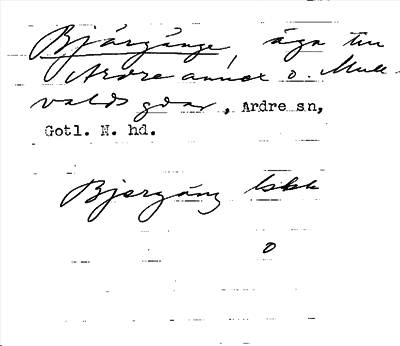 Bjärgänge, äga till
Ardre annex o. Mull-
valds gdar, Ardre sn,
Gotl. N. hd.
Bjergäng lskk
0